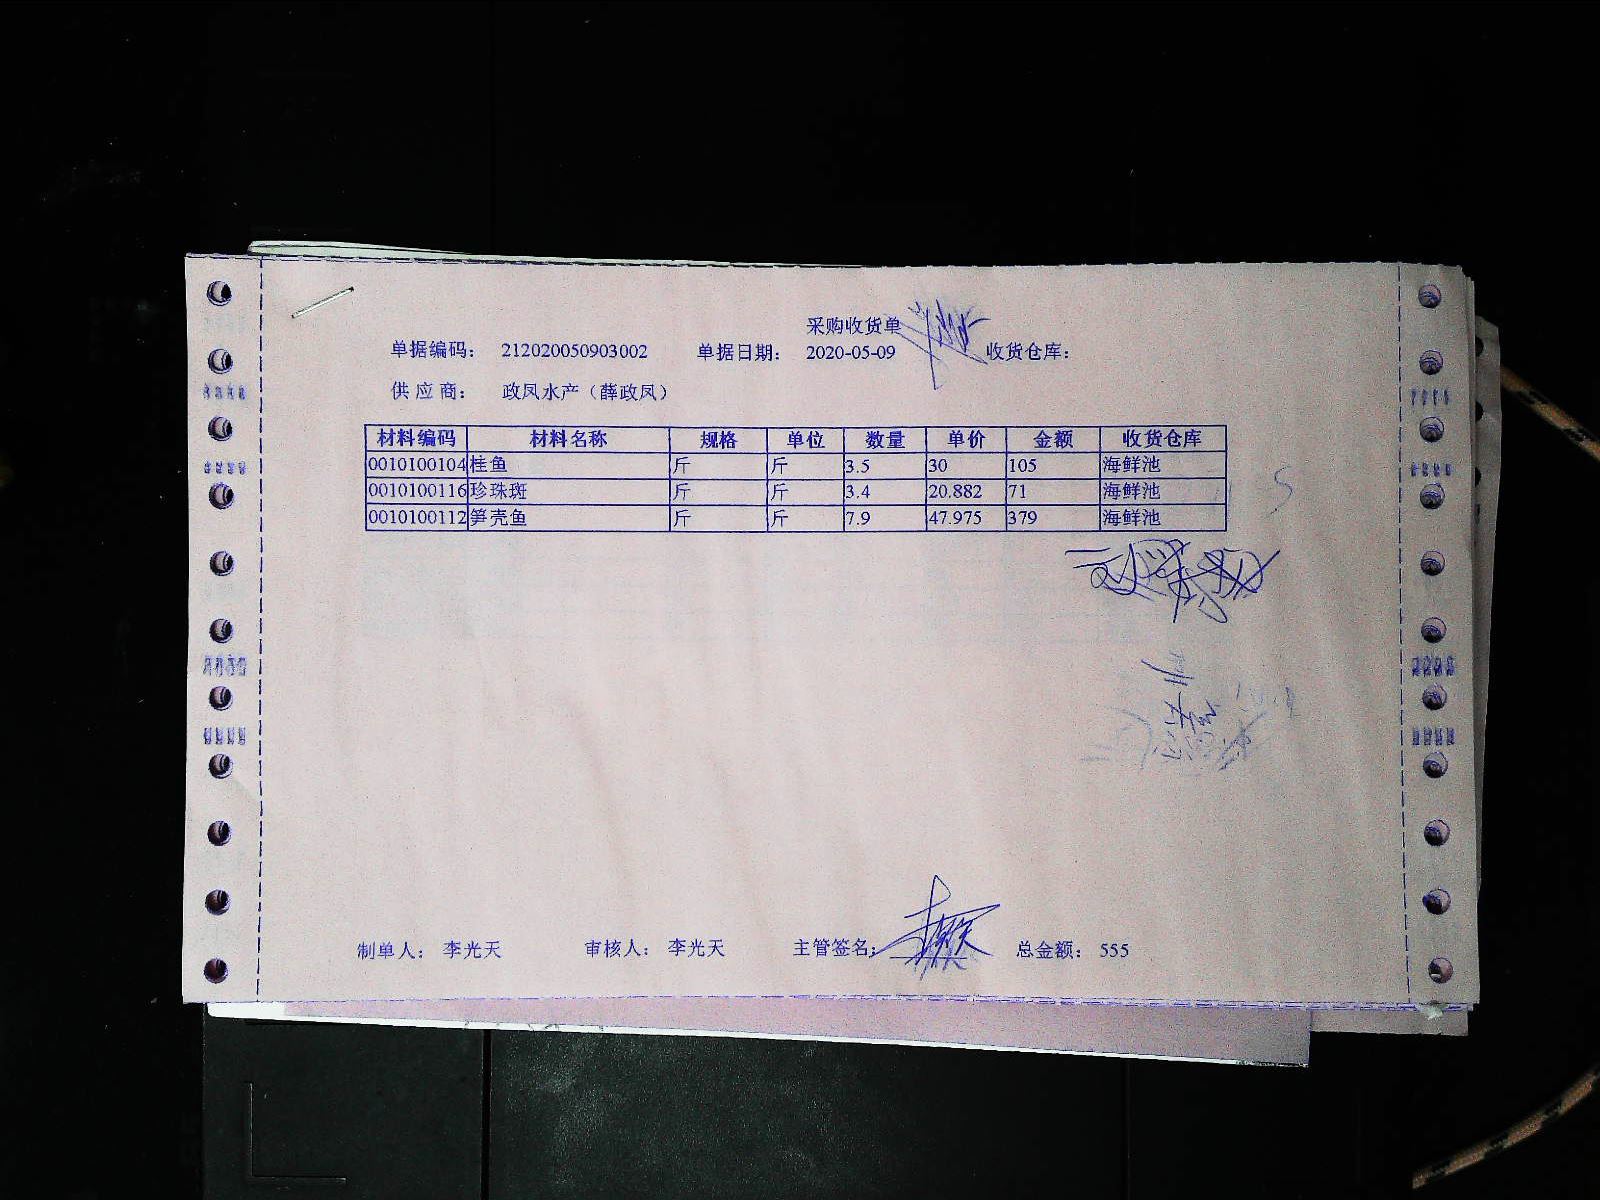 采购收货单
单据编码： 212020050903002 单据日期： 2020-05-09 收货仓库：
供应商： 政凤水产（薛政凤）
材料编码 材料名称 规格 单位 数量 单价 金额 收货仓库
0010100104 桂鱼 斤 斤 3.5 30 105 海鲜池
0010100116 珍珠斑 斤 斤 3.4 20.882 71 海鲜池
0010100112 笋壳鱼 斤 斤 7.9 47.975 379 海鲜池
制单人： 李光天 审核人： 李光天 主管签名： 总金额： 555